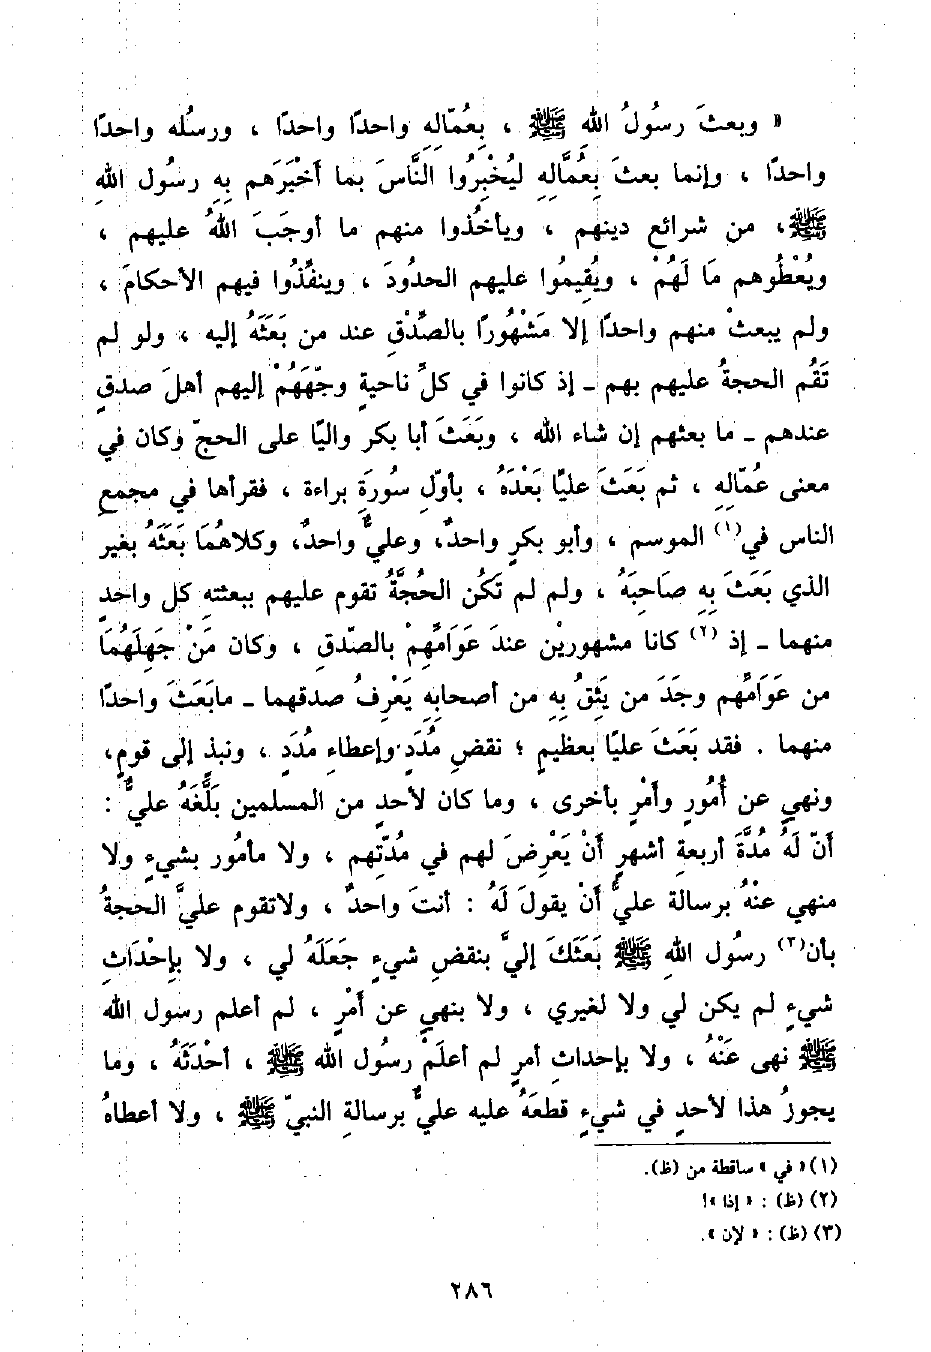 « وبعثَ رسُولُ اللهِ ﷺ ، بِعُمّالِهِ واحدًا واحدًا ، ورسُله واحدًا
واحدًا ، وإنما بعثَ بِعُمَّالِهِ ليُخْبِرُوا النَّاسَ بما أخْبَرَهم بِهِ رسُول اللهِ
ﷺ، من شرائع دينهم ، ويأخُذوا منهم ما أوجَبَ اللهُ عليهم ،
ويُعْطُوهم مَا لَهُمْ ، ويُقِيمُوا عليهم الحدُودَ ، وينفِّذُوا فيهم الأحكامَ ،
ولم يبعثْ منهم واحدًا إلا مَشْهُورًا بالصِّدْقِ عند من بَعَثَهُ إليه ، ولو لم
تَقُم الحجةُ عليهم بهم ـ إذ كانوا في كلِّ ناحيةٍ وجّهَهُمْ إليهم أهلَ صدقٍ
عندهم ـ ما بعثهم إن شاء الله ، وبَعَثَ أبا بكر واليًا على الحجّ وكان في
معنى عُمّالِهِ ، ثم بَعَثَ عليًا بَعْدَهُ ، بأوّلِ سُورَةِ براءة ، فقرأها في مجمعِ
الناس في(١) الموسم ، وأبو بكرٍ واحدٌ، وعليٌّ واحدٌ، وكلاهُمَا بَعَثَهُ بغير
الذي بَعَثَ بِهِ صَاحِبَهُ ، ولم لم تَكُن الحُجَّةُ تقوم عليهم ببعثته كل واحدٍ
منهما ـ إذ (٢) كانا مشهوريْن عندَ عَوَامِّهِمْ بالصّدقِ ، وكان مَنْ جَهِلَهُمَا
من عَوَامِّهم وجَدَ من يَثِقُ بِهِ من أصحابِهِ يَعْرِفُ صدقهما ـ مابَعَثَ واحدًا
منهما . فقد بَعَثَ عليًا بعظيمٍ ؛ نقضِ مُدَدٍ وإعطاءِ مُدَدٍ ، ونبذٍ إلى قومٍ،
ونهيٍ عن أُمُورٍ وأمْرٍ بأخرى ، وما كان لأحدٍ من المسلمين بَلَّغَهُ عليٌّ :
أنّ لَهُ مُدَّةَ أربعةِ أشهرٍ أنْ يَعْرِضَ لهم في مدّتِهم ، ولا مأمُور بشيءٍ ولا
منهي عنْهُ برسالة عليٍّ أنْ يقولَ لَهُ : أنتَ واحدٌ ، ولاتقوم عليَّ الحجةُ
بأن(٣) رسُول اللهِ ﷺ بَعَثَكَ إليَّ بنقضِ شيءٍ جَعَلَهُ لي ، ولا بإحْدَاثِ
شيءٍ لم يكن لي ولا لغيري ، ولا بنهيٍ عن أمْرٍ ، لم أعلم رسول الله
ﷺ نهى عَنْهُ ، ولا بإحداثِ أمرٍ لم أعلَمْ رسُول الله ﷺ ، أحْدَثَهُ ، وما
يجوزُ هذا لأحدٍ في شيءٍ قطعَهُ عليه عليٌّ برسالةِ النبيّ ﷺ ، ولا أعطاهُ
(١) « في » ساقطة من (ظ).
(٢) (ظ) : « إذا »!
(٣) (ظ) : « لإن ».
٢٨٦